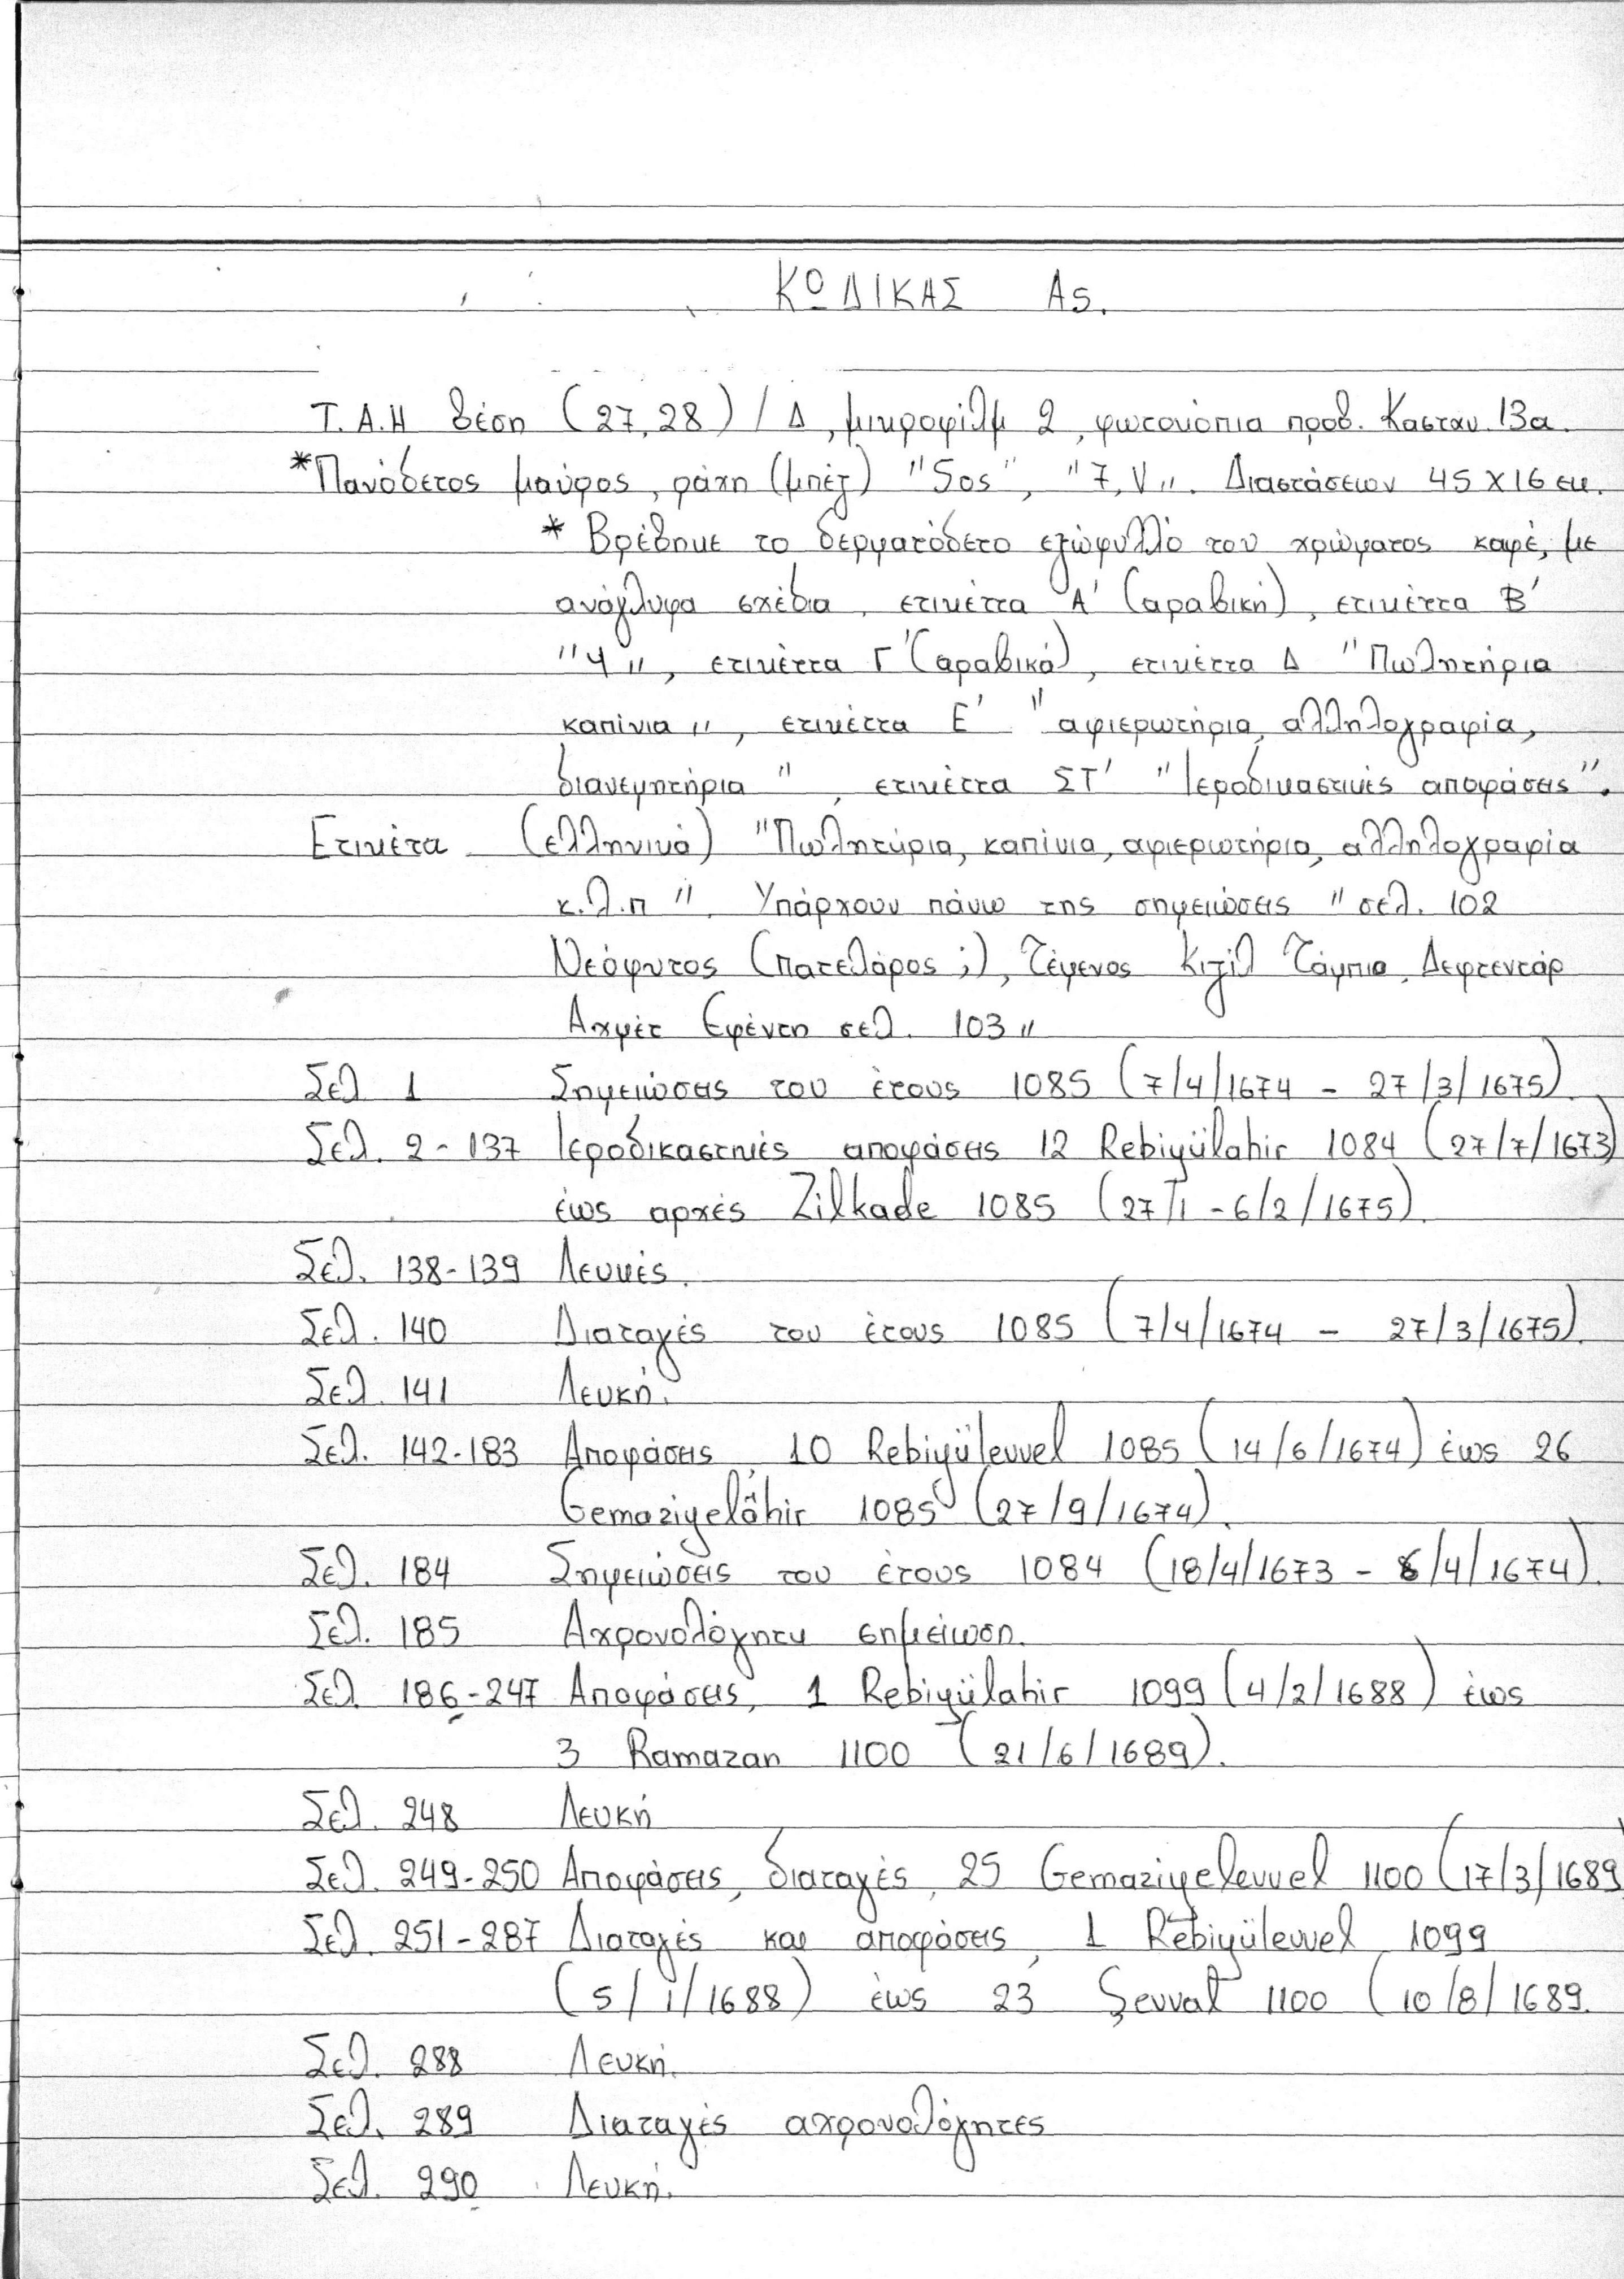 ΚΩΔΙΚΑΣ Α5.
Τ.Α.Η θέση (27,28) / Δ, μικροφίλμ 2, φωτοκόπια προθ. Κασταν. 13α.
*Πανόδετος μαύρος, ράχη (μπέζ) "5ος", "7, V". Διαστάσεων 45 Χ 16 εκ.
* Βρέθηκε το δερματόδετο εξώφυλλό του χρώματος καφέ, με
ανάγλυφα σχέδια, ετικέττα Α' (αραβική), ετικέττα Β'
"4", ετικέττα Γ' (αραβικά), ετικέττα Δ "Πωλητήρια
καπίνια", ετικέττα Ε' "αφιερωτήρια, αλληλογραφία,
διανεμητήρια", ετικέττα ΣΤ' "Ιεροδικαστικές αποφάσεις".
Ετικέτα (ελληνικά) "Πωλητήρια, καπίνια, αφιερωτήρια, αλληλογραφία
κ.λ.π". Υπάρχουν πάνω της σημειώσεις "σελ. 102
Νεόφυτος (Πατελάρος ;), Τέμενος Κιζίλ Τάμπια, Δεφτεντάρ
Αχμέτ Εφέντη σελ. 103"
Σελ 1 Σημειώσεις του έτους 1085 (7/4/1674 - 27/3/1675).
Σελ. 2 - 137 Ιεροδικαστικές αποφάσεις 12 Rebiyülahir 1084 (27/7/1673)
έως αρχές Zilkade 1085 (27/1 - 6/2/1675).
Σελ. 138-139 Λευκές.
Σελ. 140 Διαταγές του έτους 1085 (7/4/1674 - 27/3/1675).
Σελ. 141 Λευκή.
Σελ. 142-183 Αποφάσεις, 10 Rebiyülevvel 1085 (14/6/1674) έως 26
Gemaziyelâhir 1085 (27/9/1674).
Σελ. 184 Σημειώσεις του έτους 1084 (18/4/1673 - 6/4/1674).
Σελ. 185 Αχρονολόγητη σημείωση.
Σελ 186-247 Αποφάσεις, 1 Rebiyülahir 1099 (4/2/1688) έως
3 Ramazan 1100 (21/6/1689).
Σελ. 248 Λευκή
Σελ. 249-250 Αποφάσεις, διαταγές, 25 Gemaziyelevvel 1100 (17/3/1689)
Σελ. 251-287 Διαταγές και αποφάσεις, 1 Rebiyülevvel 1099
(5/1/1688) έως 23 Şevval 1100 (10/8/1689.
Σελ. 288 Λευκή.
Σελ. 289 Διαταγές αχρονολόγητες
Σελ. 290 Λευκή.